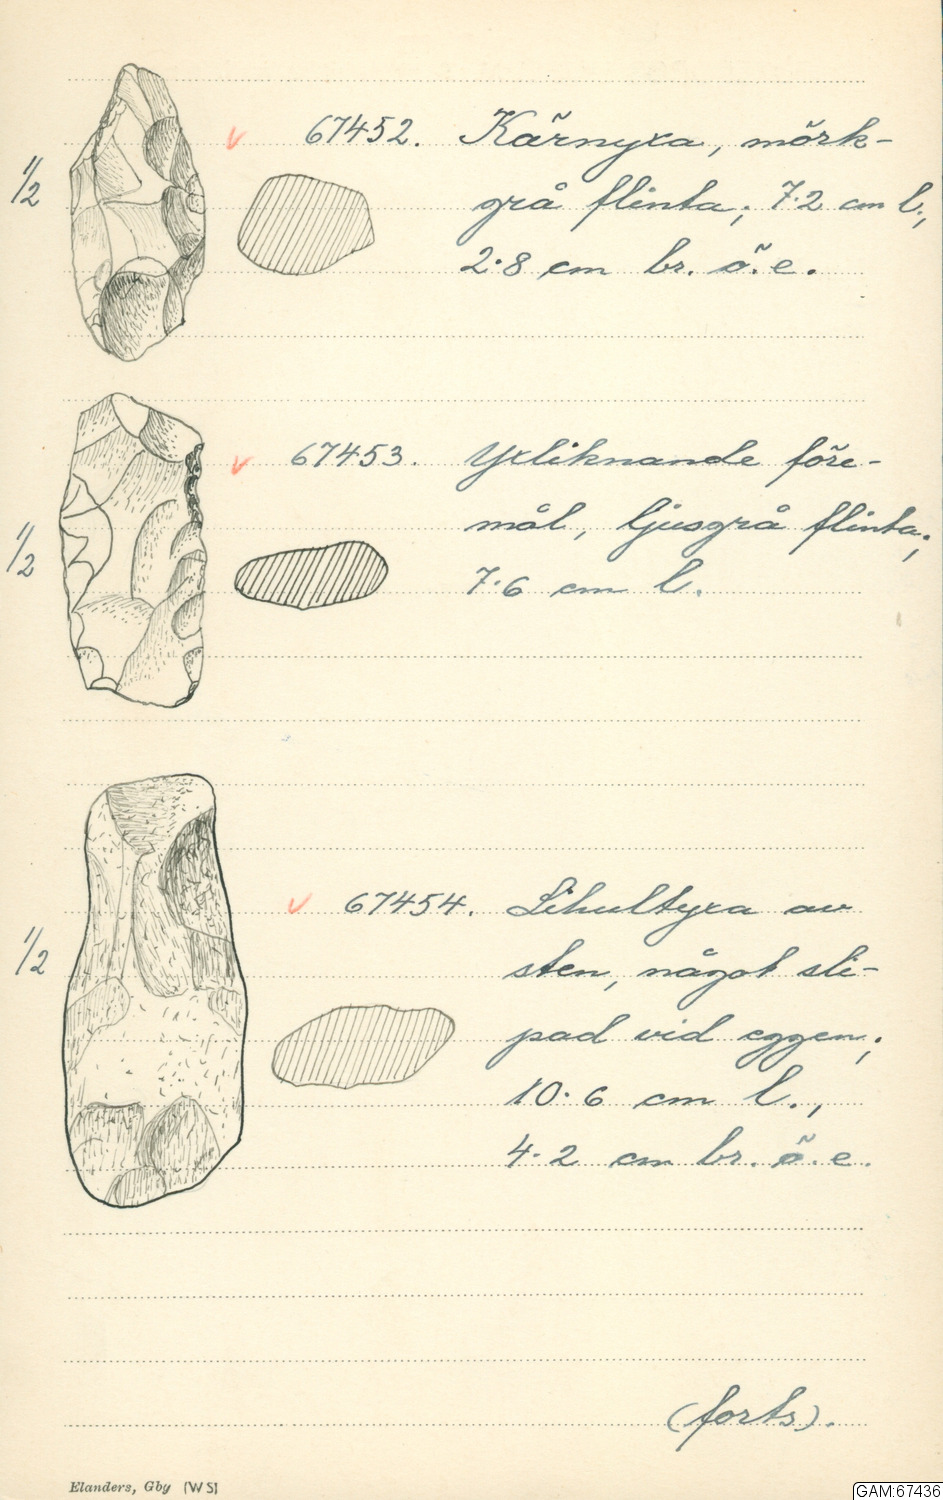 67452. Kärnyxa, mörk-
1/2
grå flinta; 7.2 cm l.,
2.8 cm br. ö. e.
67453. Yxliknande före-
mål, ljusgrå flinta;
1/2
7.6 cm l.
67454. Lihultyxa av
1/2
sten, något sli-
pad vid eggen;
10.6 cm l.,
4.2 cm br. ö. e.
(forts).
Elanders, Gby (WS)
GAM:67436